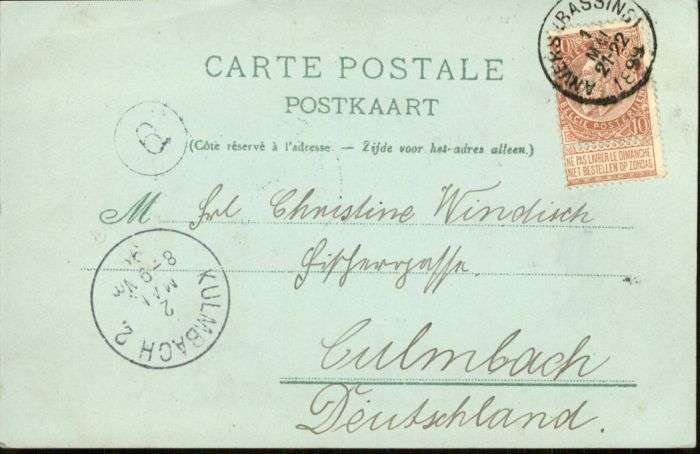 ANVERS (BASSINS)
1
MAI
21-22
99
10 10
BELGIE POSTERIJEN
NE PAS LIVRER LE DIMANCHE
NIET BESTELLEN OP ZONDAG
CARTE POSTALE
POSTKAART
(Côté réservé à l'adresse. — Zijde voor het adres alleen.)
M Frl Christine Windisch
Fischergasse.
Culmbach
Deutschland.
KULMBACH 2.
2
MAI
Vm
8-9